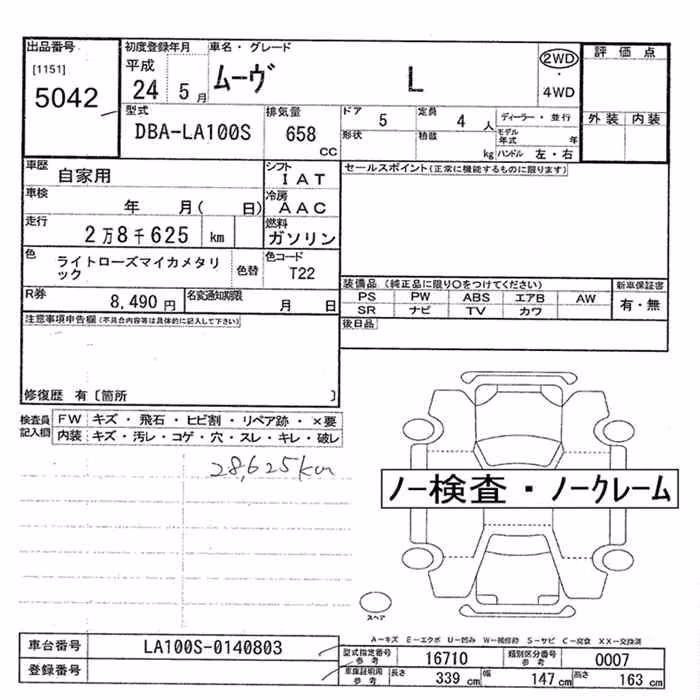 出品番号
[1151]
5042
初度登録年月
平成
24 5月
車名・グレード
ムーヴ L
2WD
・
4WD
評価点
外装 内装
型式
DBA-LA100S
排気量
658
CC
ドア 5
形状
定員 4 人
積載 kg
ディーラー・並行
モデル年式 年
ハンドル 左・右
車歴
自家用
シフト
IAT
車検
年 月( 日)
冷房
AAC
走行
2万8千625 km
燃料
ガソリン
色
ライトローズマイカメタリ
ック
色替
色コード
T22
R券
8,490 円
名変通知期限
月 日
セールスポイント(正常に機能するものに限ります)
装備品 (純正品に限り○をつけてください)
PS PW ABS エアB AW
SR ナビ TV カワ
新車保証書
有・無
後日品
注意事項申告欄(不具合内容等は具体的に記入して下さい)
修復歴 有〔箇所 〕
検査員
記入欄
FW キズ・飛石・ヒビ割・リペア跡・×要
内装 キズ・汚レ・コゲ・穴・スレ・キレ・破レ
28,625km
ノー検査・ノークレーム
スペア
A-キズ E-エクボ U-凹み W-補修跡 S-サビ C-腐食 XX-交換済
車台番号
LA100S-0140803
登録番号
型式指定番号
参考
16710
類別区分番号
参考
0007
車庫証明用
参考
長さ
339 cm
幅
147 cm
高さ
163 cm